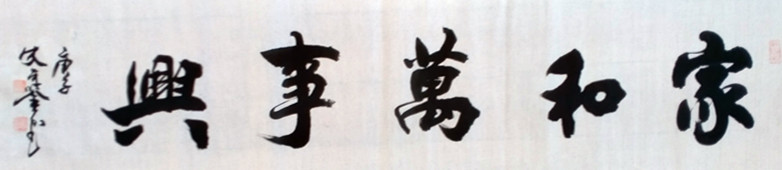 家和萬事興
庚子